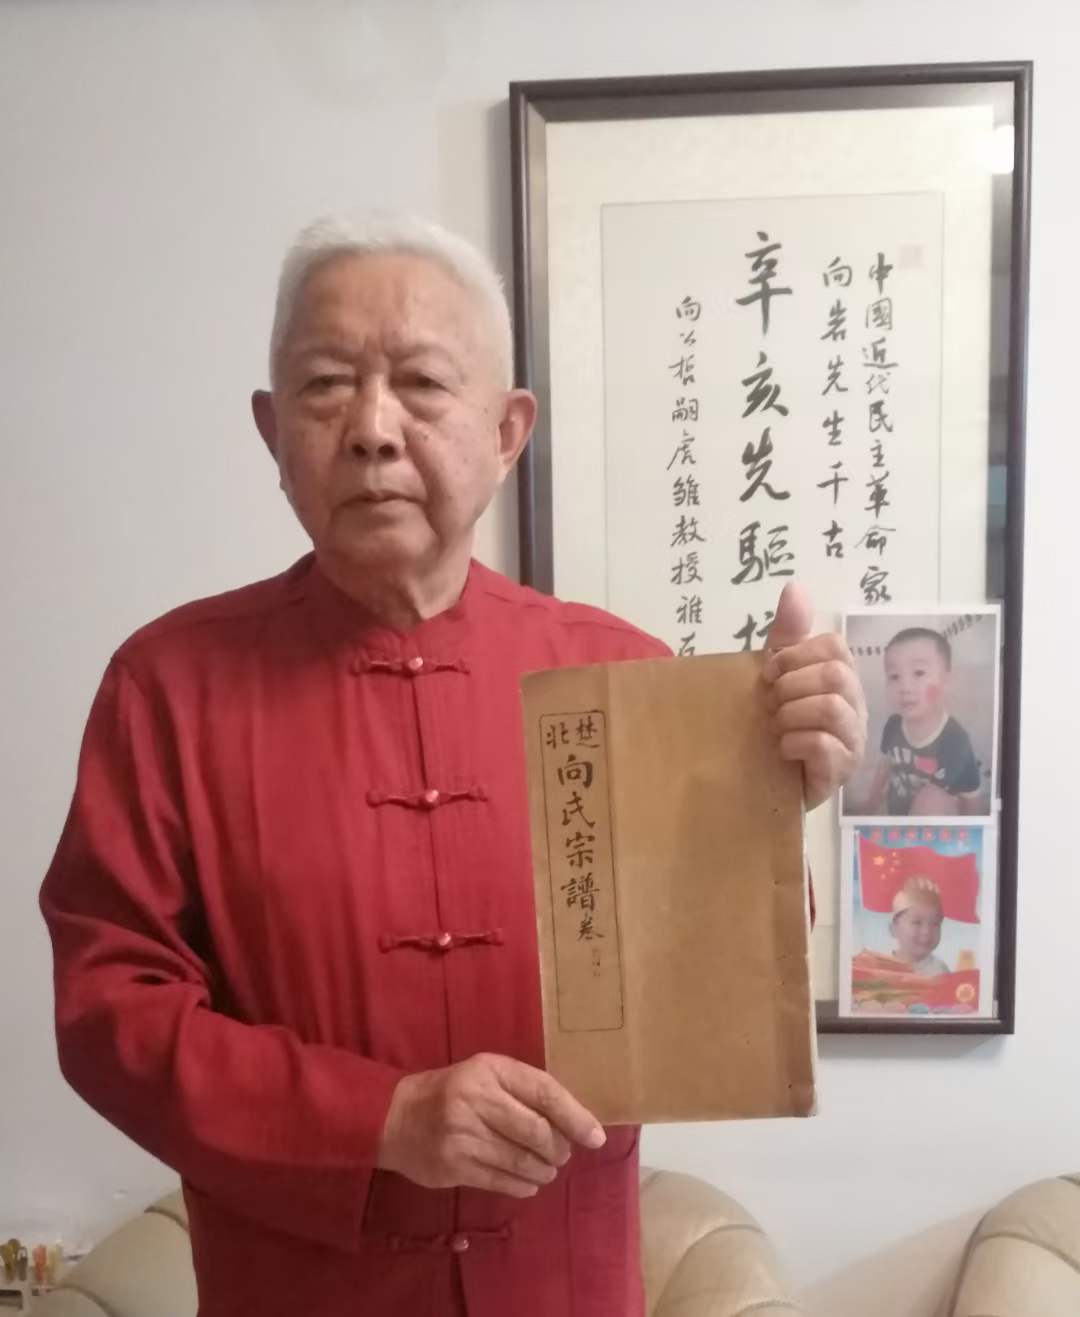 中國近代民主革命家
向岩先生千古
辛亥先驅
向公哲嗣虎雏教授雅
楚北
向氏宗譜卷